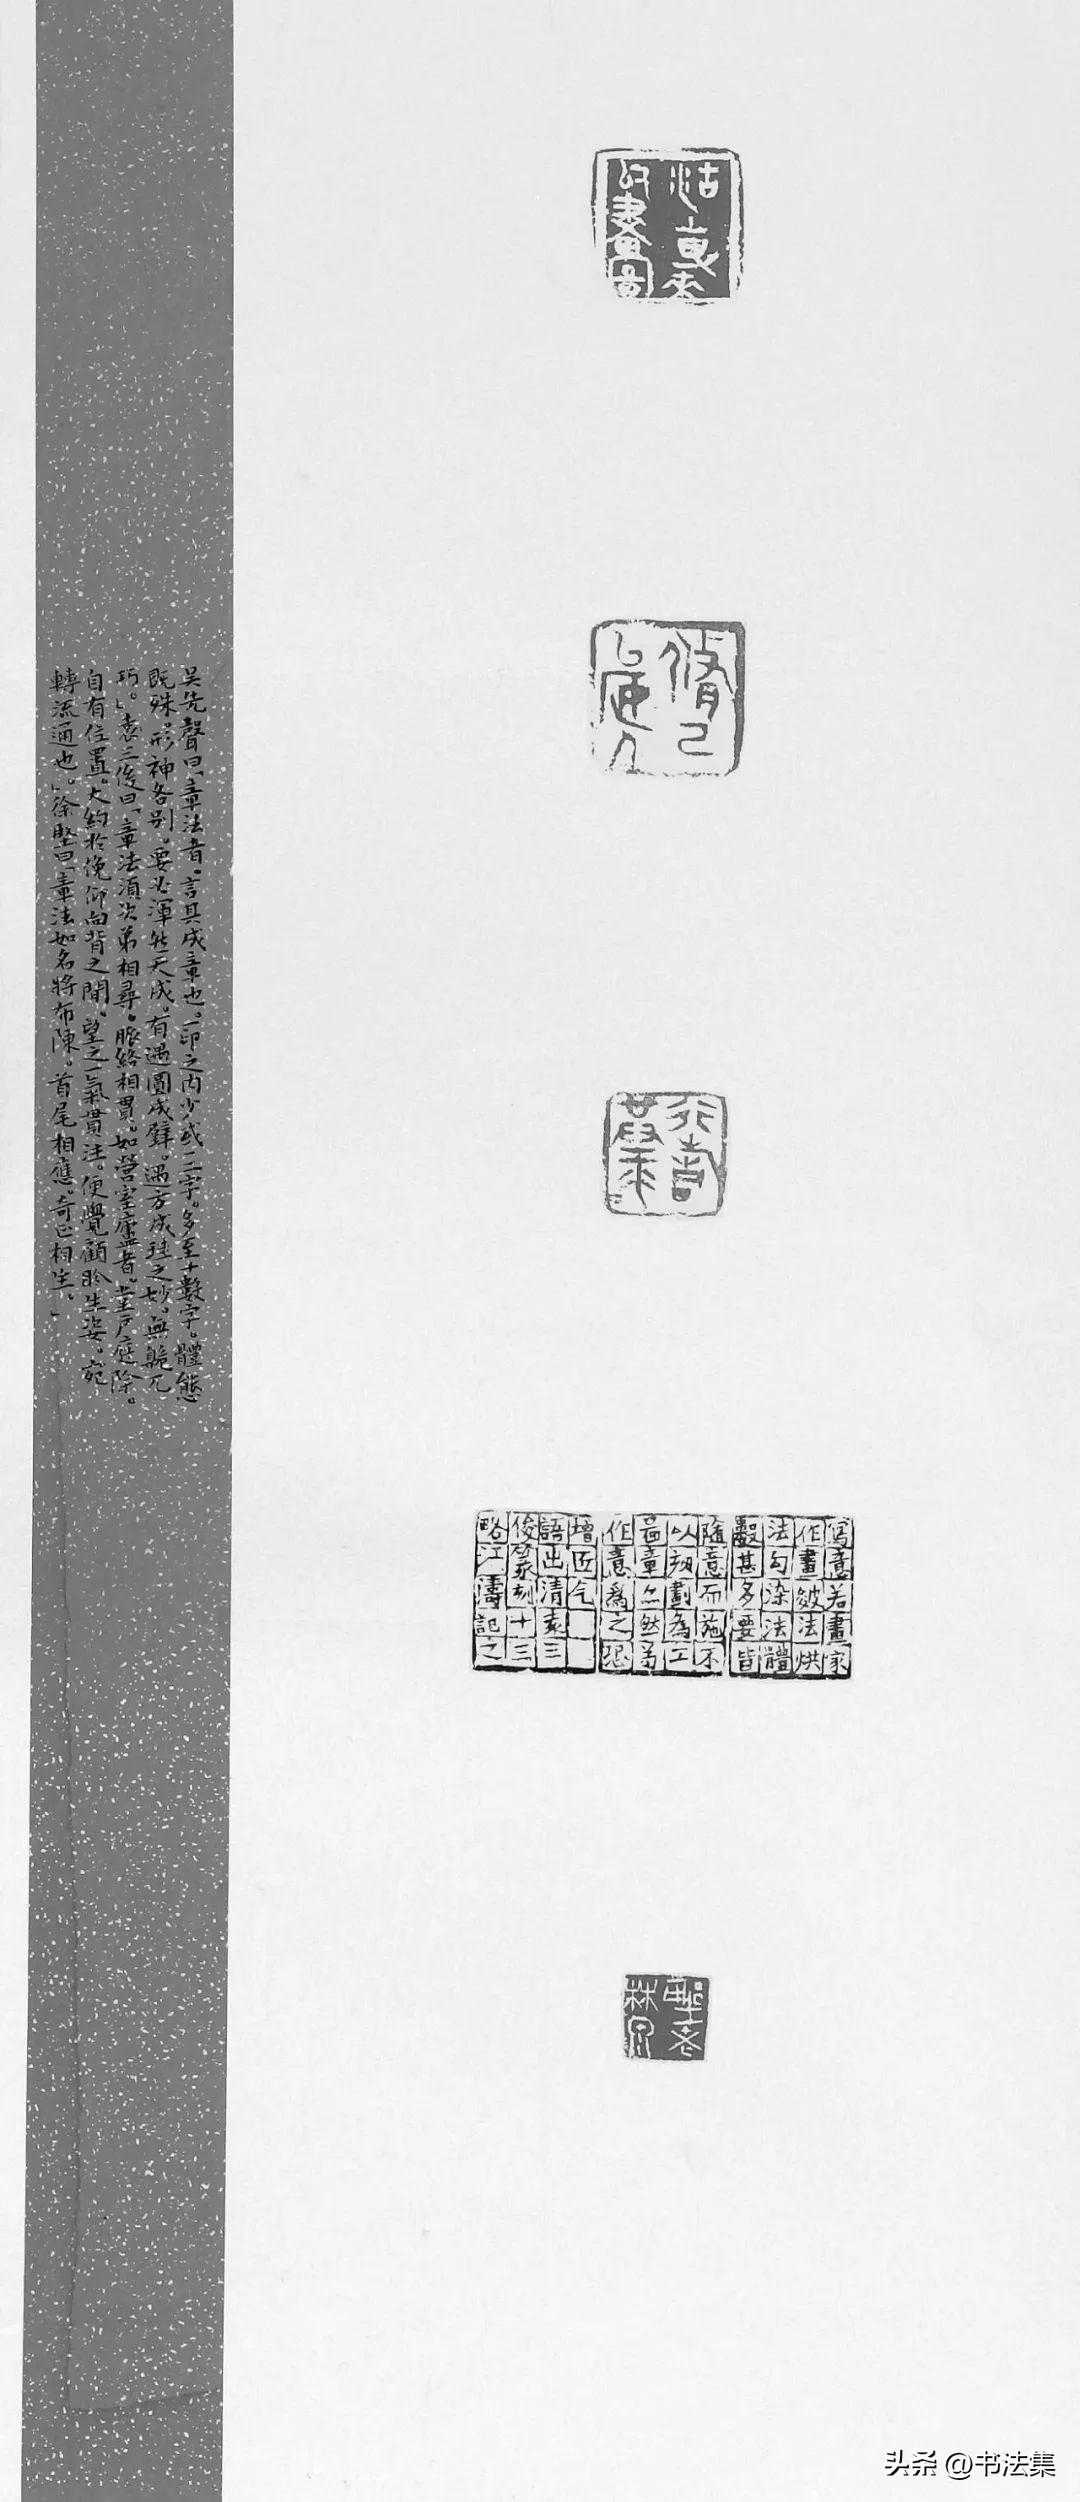 吴先聲曰「章法者。言其成章也。一印之内少或二字。多至十數字。體態
既殊。形神各别。要必渾然天成。有遇圓成璧。遇方成珪之妙。無臲卼
巧。」袁三俊曰「章法須次第相尋。脈絡相貫。如營室廬者。堂户庭除。
自有位置。大約於俛仰向背之間。望之一氣貫注。便覺顧盼生姿。宛
轉流通也。」徐堅曰「章法如名將布陳。首尾相應。奇正相生。」
脩己
寫意若畫家
作畫皴法烘
法勾染法體
數甚多要皆
隨意而施不
以刻劃為工
啚章亦然苐
作意為之恐
增匠气
語出清袁三
俊篆刻十三
略江濤記之
野老
林泉
头条 @书法集